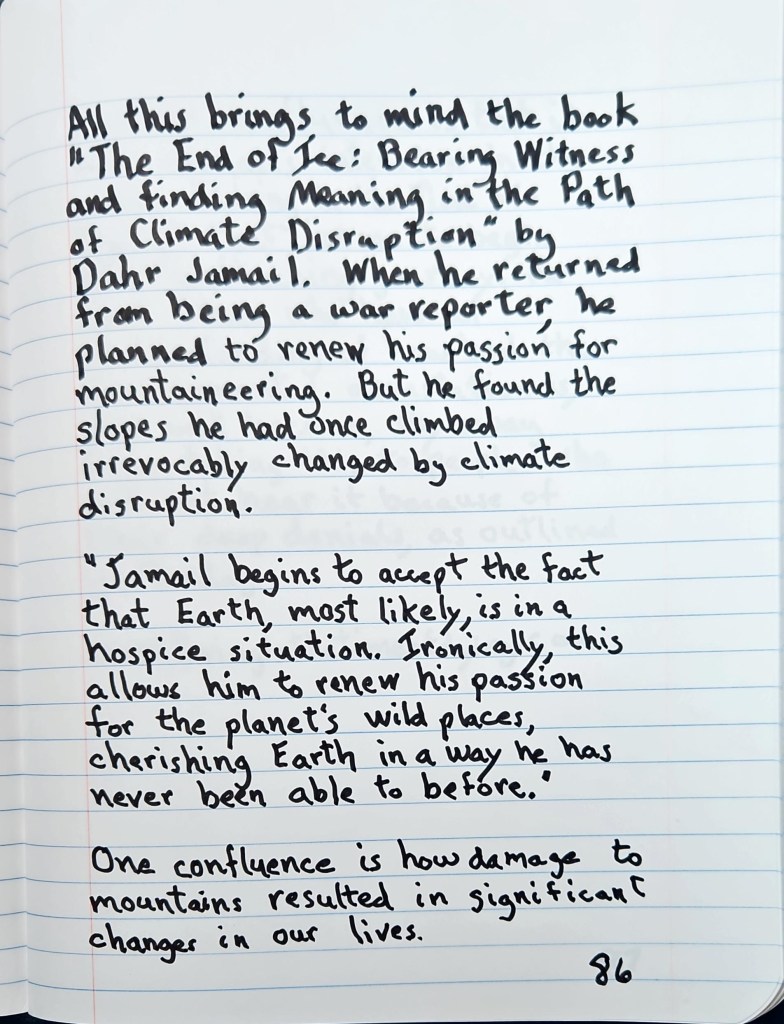 All this brings to mind the book
"The End of Ice: Bearing Witness
and finding Meaning in the Path
of Climate Disruption" by
Dahr Jamail. When he returned
from being a war reporter, he
planned to renew his passion for
mountaineering. But he found the
slopes he had once climbed
irrevocably changed by climate
disruption.
"Jamail begins to accept the fact
that Earth, most likely, is in a
hospice situation. Ironically, this
allows him to renew his passion
for the planet's wild places,
cherishing Earth in a way he has
never been able to before."
One confluence is how damage to
mountains resulted in significant
changes in our lives.
86